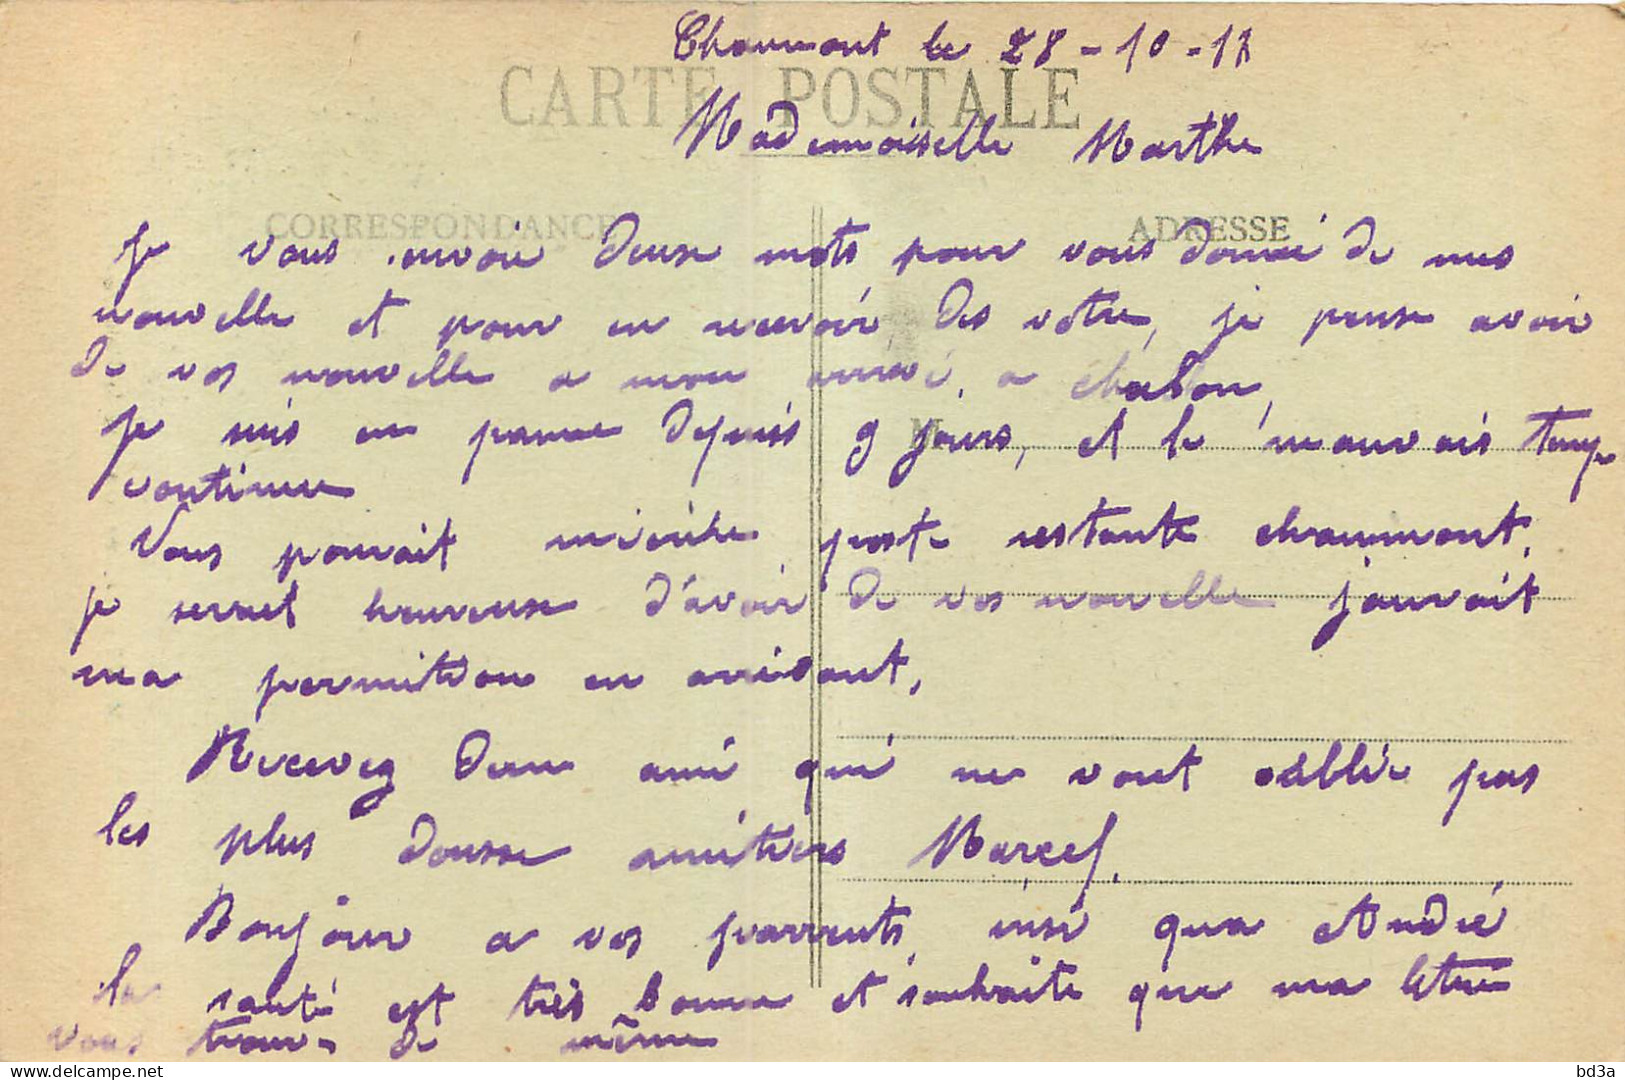 Chaumont le 28-10-17
CARTE POSTALE
Mademoiselle Marthe
CORRESPONDANCE
ADRESSE
Je vous envoie deuse mots pour vous donné de mes
nouvelle et pour en recevoir des votre, je pense avoir
de vos nouvelle a mon arrivé, a chalon,
Je suis en panne depuis 9 jours, et le mauvais temps
continue
Vous pouvait m'ecrire poste restante chaumont,
je serait heureuse d'avoir de vos nouvelle j'auvait
ma permition en arrivant,
Recevez d'un ami qui ne vout oublie pas
les plus dousse amitiers Marcel,
Bonjour a vos parrents, insi qua André
la santé est très bonne et souhaite que ma lettre
vous trouve de même
delcampe.net
bd3a